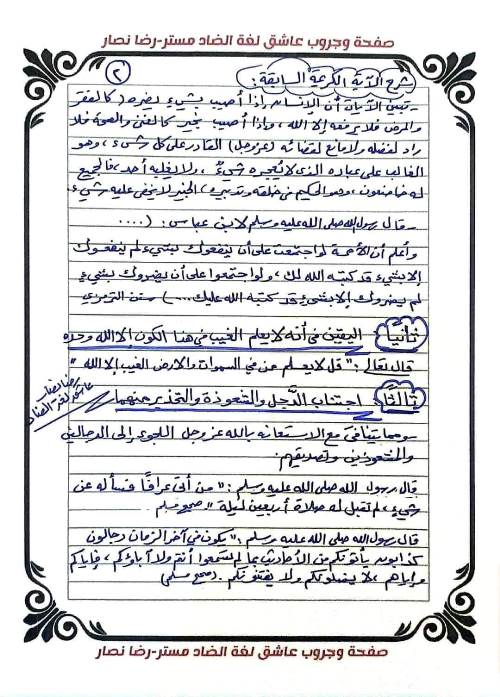 صفحة وجروب عاشق لغة الضاد مستر-رضا نصار
٢
شرح الآية الكريمة السابقة:
- تبين الآية أن الإنسان إذا أصيب بشيء يضره (كالفقر
والمرض فلا يرفعه إلا الله، وإذا أصيب بخير كالغنى والصحة فلا
راد لفضله ولا مانع لقضائه (عز وجل) القادر على كل شيء، وهو
الغالب على عباده الذى لا يُعجزه شيءٌ، ولا يغلبه أحد، فالجميع
له خاضعون، وهو الحكيم فى خلقه وتدبيره، الخبير لا يخفى عليه شيء
- قال رسول الله صلى الله عليه وسلم لابن عباس: (....
وأعلم أن الأمة لو اجتمعت على أن ينفعوك بشيء لم ينفعوك
إلا بشيء قد كتبه الله لك، ولو اجتمعوا على أن يضروك بشيء
لم يضروك إلا بشيء قد كتبه الله عليك....) سنن الترمذي
ثانيًا: اليقين فى أنه لا يعلم الغيب فى هذا الكون إلا الله وحده
قال تعالى: "قل لا يعلم من فى السموات والارض الغيب إلا الله"
ثالثًا: اجتناب الدَّجل والشعوذة والتحذير منهما
رضا نصار
عاشق لغة الضاد
- ومما يتنافى مع الاستعانة بالله عز وجل اللجوء إلى الدجالين
والمشعوذين وتصديقهم.
قال رسول الله صلى الله عليه وسلم: "من أتى عرافًا فسأله عن
شيء، لم تقبل له صلاة أربعين ليلة" صحيح مسلم
قال رسول الله صلى الله عليه وسلم: "يكون في آخر الزمان دجالون
كذابون يأتونكم من الأحاديث بما لم تسمعوا أنتم ولا آباؤكم، فإياكم
وإياهم، لا يضلونكم ولا يفتنونكم. (صحيح مسلم)
صفحة وجروب عاشق لغة الضاد مستر-رضا نصار